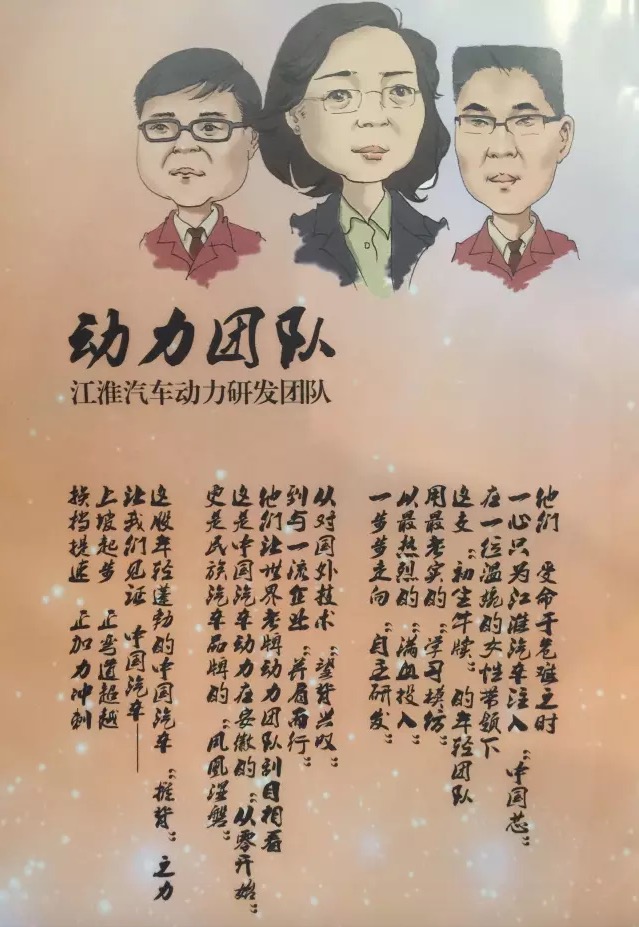 动力团队
江淮汽车动力研发团队
他们 受命于危难之时
一心只为江淮汽车注入“中国芯”
在一位温婉的女性带领下
这支“初生牛犊”的年轻团队
用最老实的“学习模仿”
以最热烈的“满血投入”
一步步走向“自主研发”
从对国外技术“望背兴叹”
到与一流企业“并肩而行”
他们让世界老牌动力团队刮目相看
这是中国汽车动力在安徽的“从零开始”
更是民族汽车品牌的“凤凰涅槃”
这股年轻蓬勃的中国汽车“推背”之力
让我们见证 中国汽车——
上坡起步 正弯道超越
换档提速 正加力冲刺